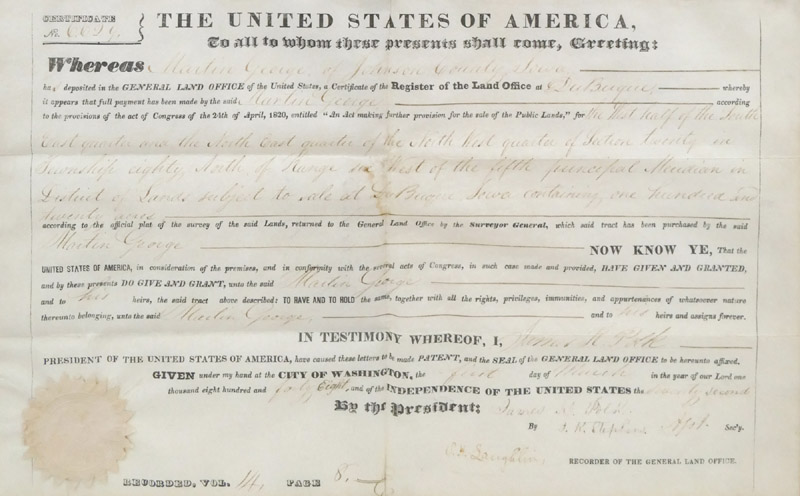 CERTIFICATE
No.
THE UNITED STATES OF AMERICA,
To all to whom these presents shall come, Greeting:
Whereas Martin George of Johnson County, Iowa
ha deposited in the GENERAL LAND OFFICE of the United States, a Certificate of the Register of the Land Office at Du Buque whereby
it appears that full payment has been made by the said Martin George according
to the provisions of the act of Congress of the 24th of April, 1820, entitled "An Act making further provision for the sale of the Public Lands," for the West half of the South
East quarter and the North East quarter of the North West quarter of Section twenty in
Township eighty North of Range six West of the fifth principal Meridian in
District of Lands subject to sale at Du Buque Iowa containing one hundred and
twenty acres
according to the official plat of the survey of the said Lands, returned to the General Land Office by the Surveyor General, which said tract has been purchased by the said
Martin George NOW KNOW YE, That the
UNITED STATES OF AMERICA, in consideration of the premises, and in conformity with the several acts of Congress, in such case made and provided, HAVE GIVEN AND GRANTED,
and by these presents DO GIVE AND GRANT, unto the said Martin George
and to his heirs, the said tract above described: TO HAVE AND TO HOLD the same, together with all the rights, privileges, immunities, and appurtenances of whatsoever nature
thereunto belonging, unto the said Martin George, and to his heirs and assigns forever.
IN TESTIMONY WHEREOF, I, James K. Polk
PRESIDENT OF THE UNITED STATES OF AMERICA, have caused these letters to be made PATENT, and the SEAL of the GENERAL LAND OFFICE to be hereunto affixed.
GIVEN under my hand at the CITY OF WASHINGTON, the first day of March in the year of our Lord one
thousand eight hundred and forty eight, and of the INDEPENDENCE OF THE UNITED STATES the seventy second
By the President: James K. Polk
By Sec'y.
RECORDER OF THE GENERAL LAND OFFICE.
RECORDED, VOL. 14, PAGE 8.